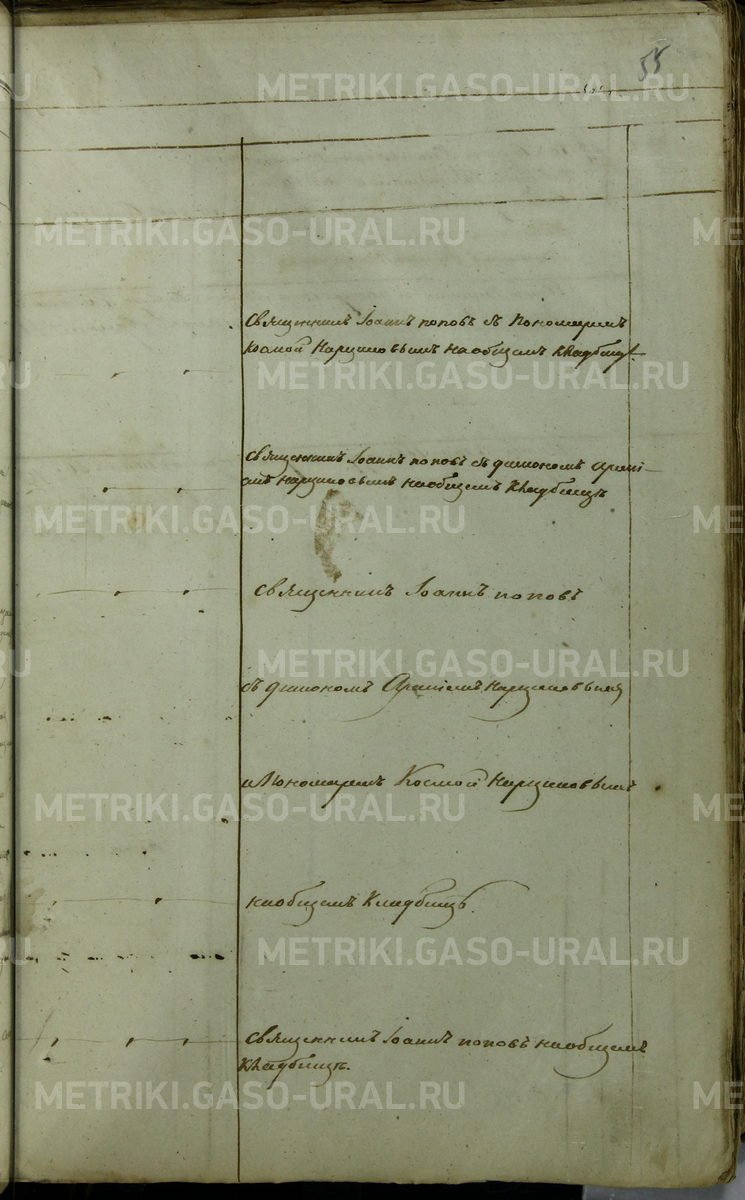 55
METRIKI.GASO-URAL.RU
METRIKI.GASO-URAL.RU
Священникъ Іоаннъ поповъ съ Пономаремъ
Космой на общемъ кладбищѣ.
METRIKI.GASO-URAL.RU
Священникъ Іоаннъ поповъ съ діякономъ
на общемъ кладбищѣ
METRIKI.GASO-URAL.RU
Священникъ Іоаннъ поповъ
METRIKI.GASO-URAL.RU
съ діякономъ
и Пономаремъ Космой
METRIKI.GASO-URAL.RU
на общемъ Кладбищѣ.
METRIKI.GASO-URAL.RU
Священникъ Іоаннъ поповъ на общемъ
METRIKI.GASO-URAL.RU
кладбищѣ.